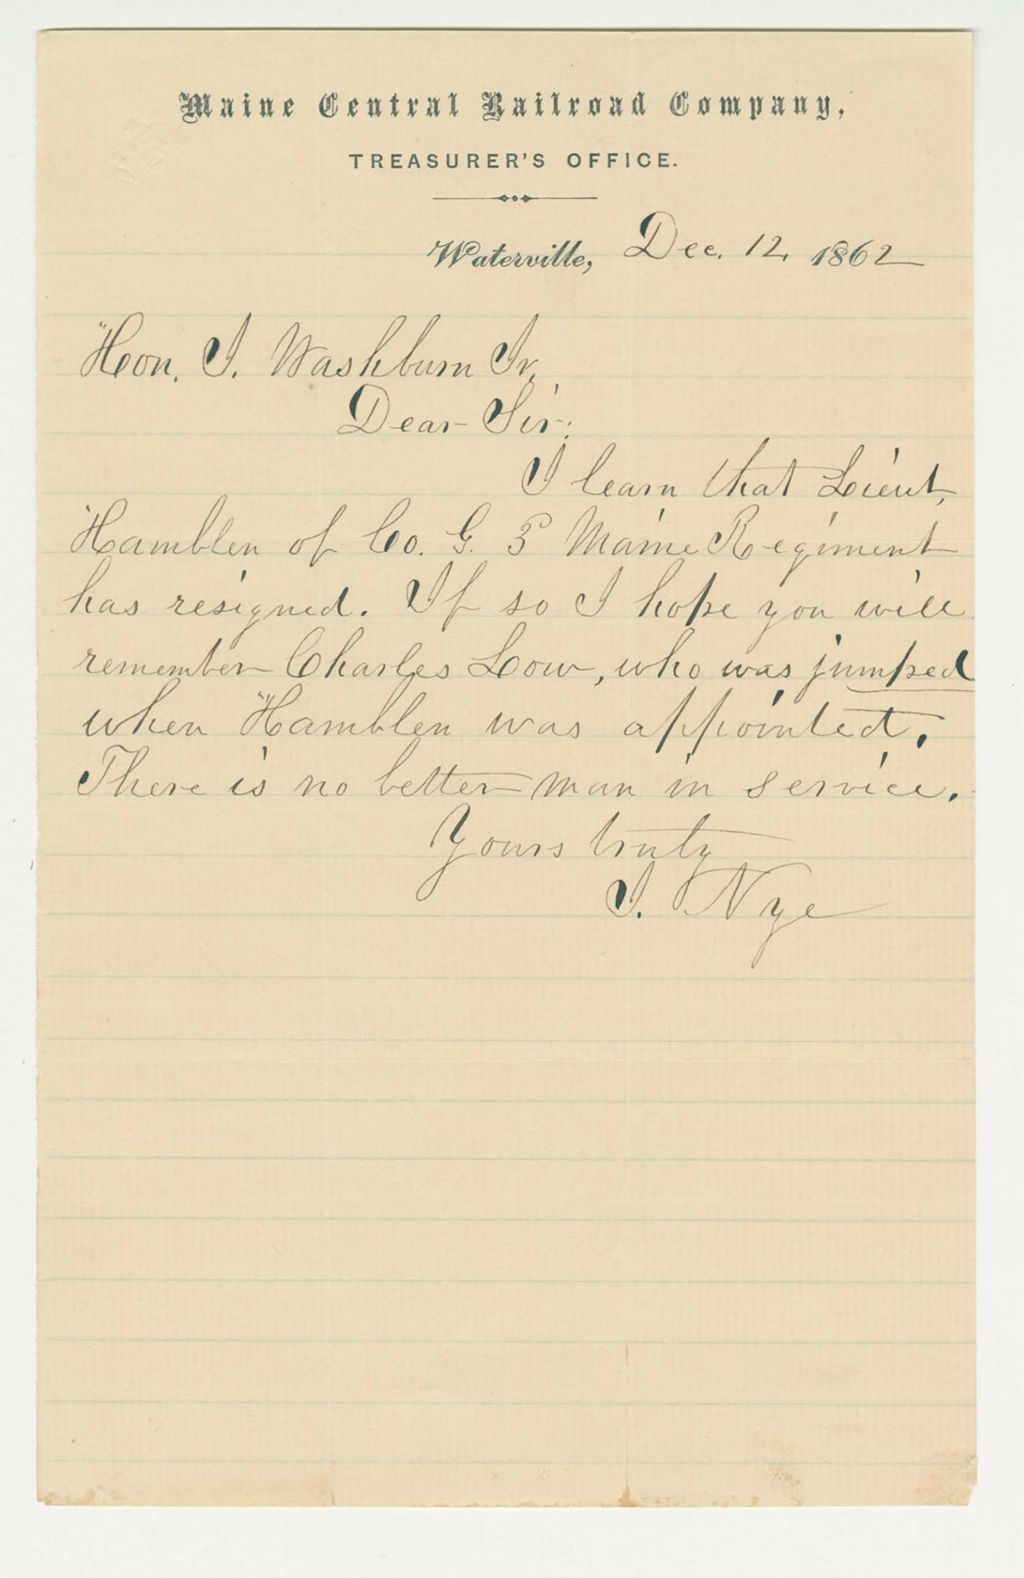 Maine Central Railroad Company,
TREASURER'S OFFICE.
Waterville, Dec. 12, 1862
Hon. I. Washburn Jr.
Dear Sir:
I learn that Lieut.
Hamblen of Co. G. 3d Maine Regiment
has resigned. If so I hope you will
remember Charles Low, who was jumped
when Hamblen was appointed.
There is no better man in service.
Yours truly
J. Nye